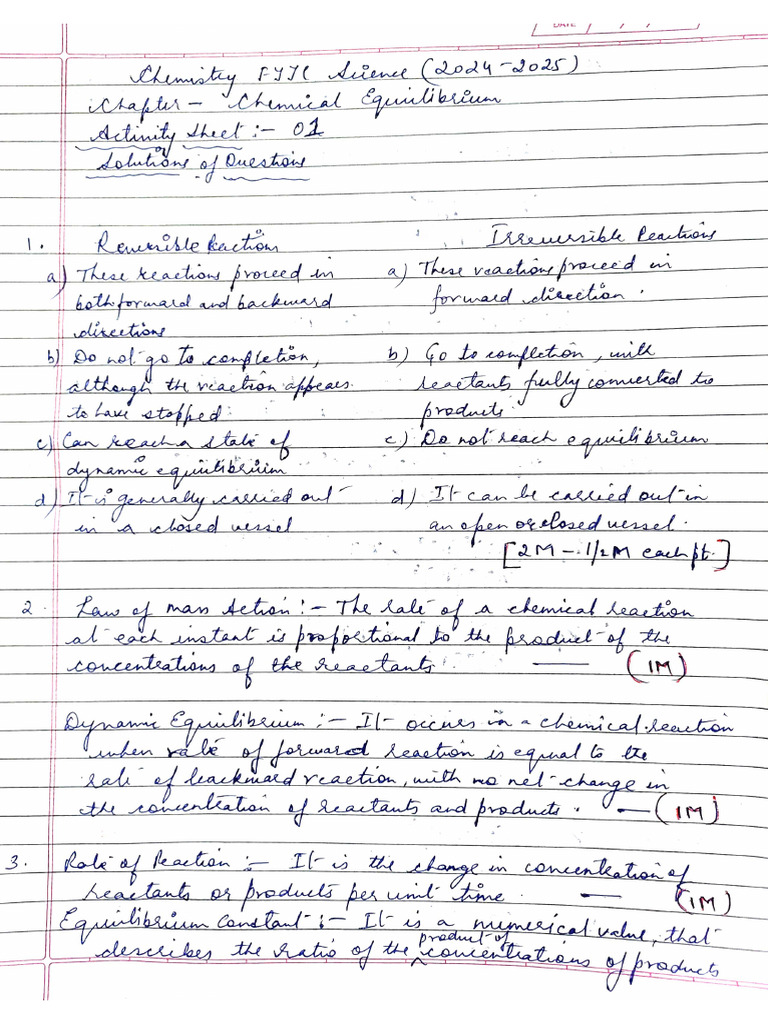 DATE
Chemistry FYJC Science (2024-2025)
Chapter - Chemical Equilibrium
Activity Sheet :- 01
Solutions of Questions
1. Reversible Reactions Irreversible Reactions
a) These reactions proceed in a) These reactions proceed in
both forward and backward forward direction.
directions
b) Do not go to completion, b) Go to completion, with
although the reaction appears reactants fully converted to
to have stopped. products.
c) Can reach a state of c) Do not reach equilibrium
dynamic equilibrium
d) It is generally carried out d) It can be carried out in
in a closed vessel an open or closed vessel.
[2M - 1/2M each pt.]
2. Law of mass Action :- The rate of a chemical reaction
at each instant is proportional to the product of the
concentrations of the reactants. — (1M)
Dynamic Equilibrium :- It occurs in a chemical reaction
when rate of forward reaction is equal to the
rate of backward reaction, with no net change in
the concentration of reactants and products. — (1M)
3. Rate of Reaction :- It is the change in concentration of
reactants or products per unit time. — (1M)
Equilibrium Constant :- It is a numerical value, that
describes the ratio of the product of concentrations of products